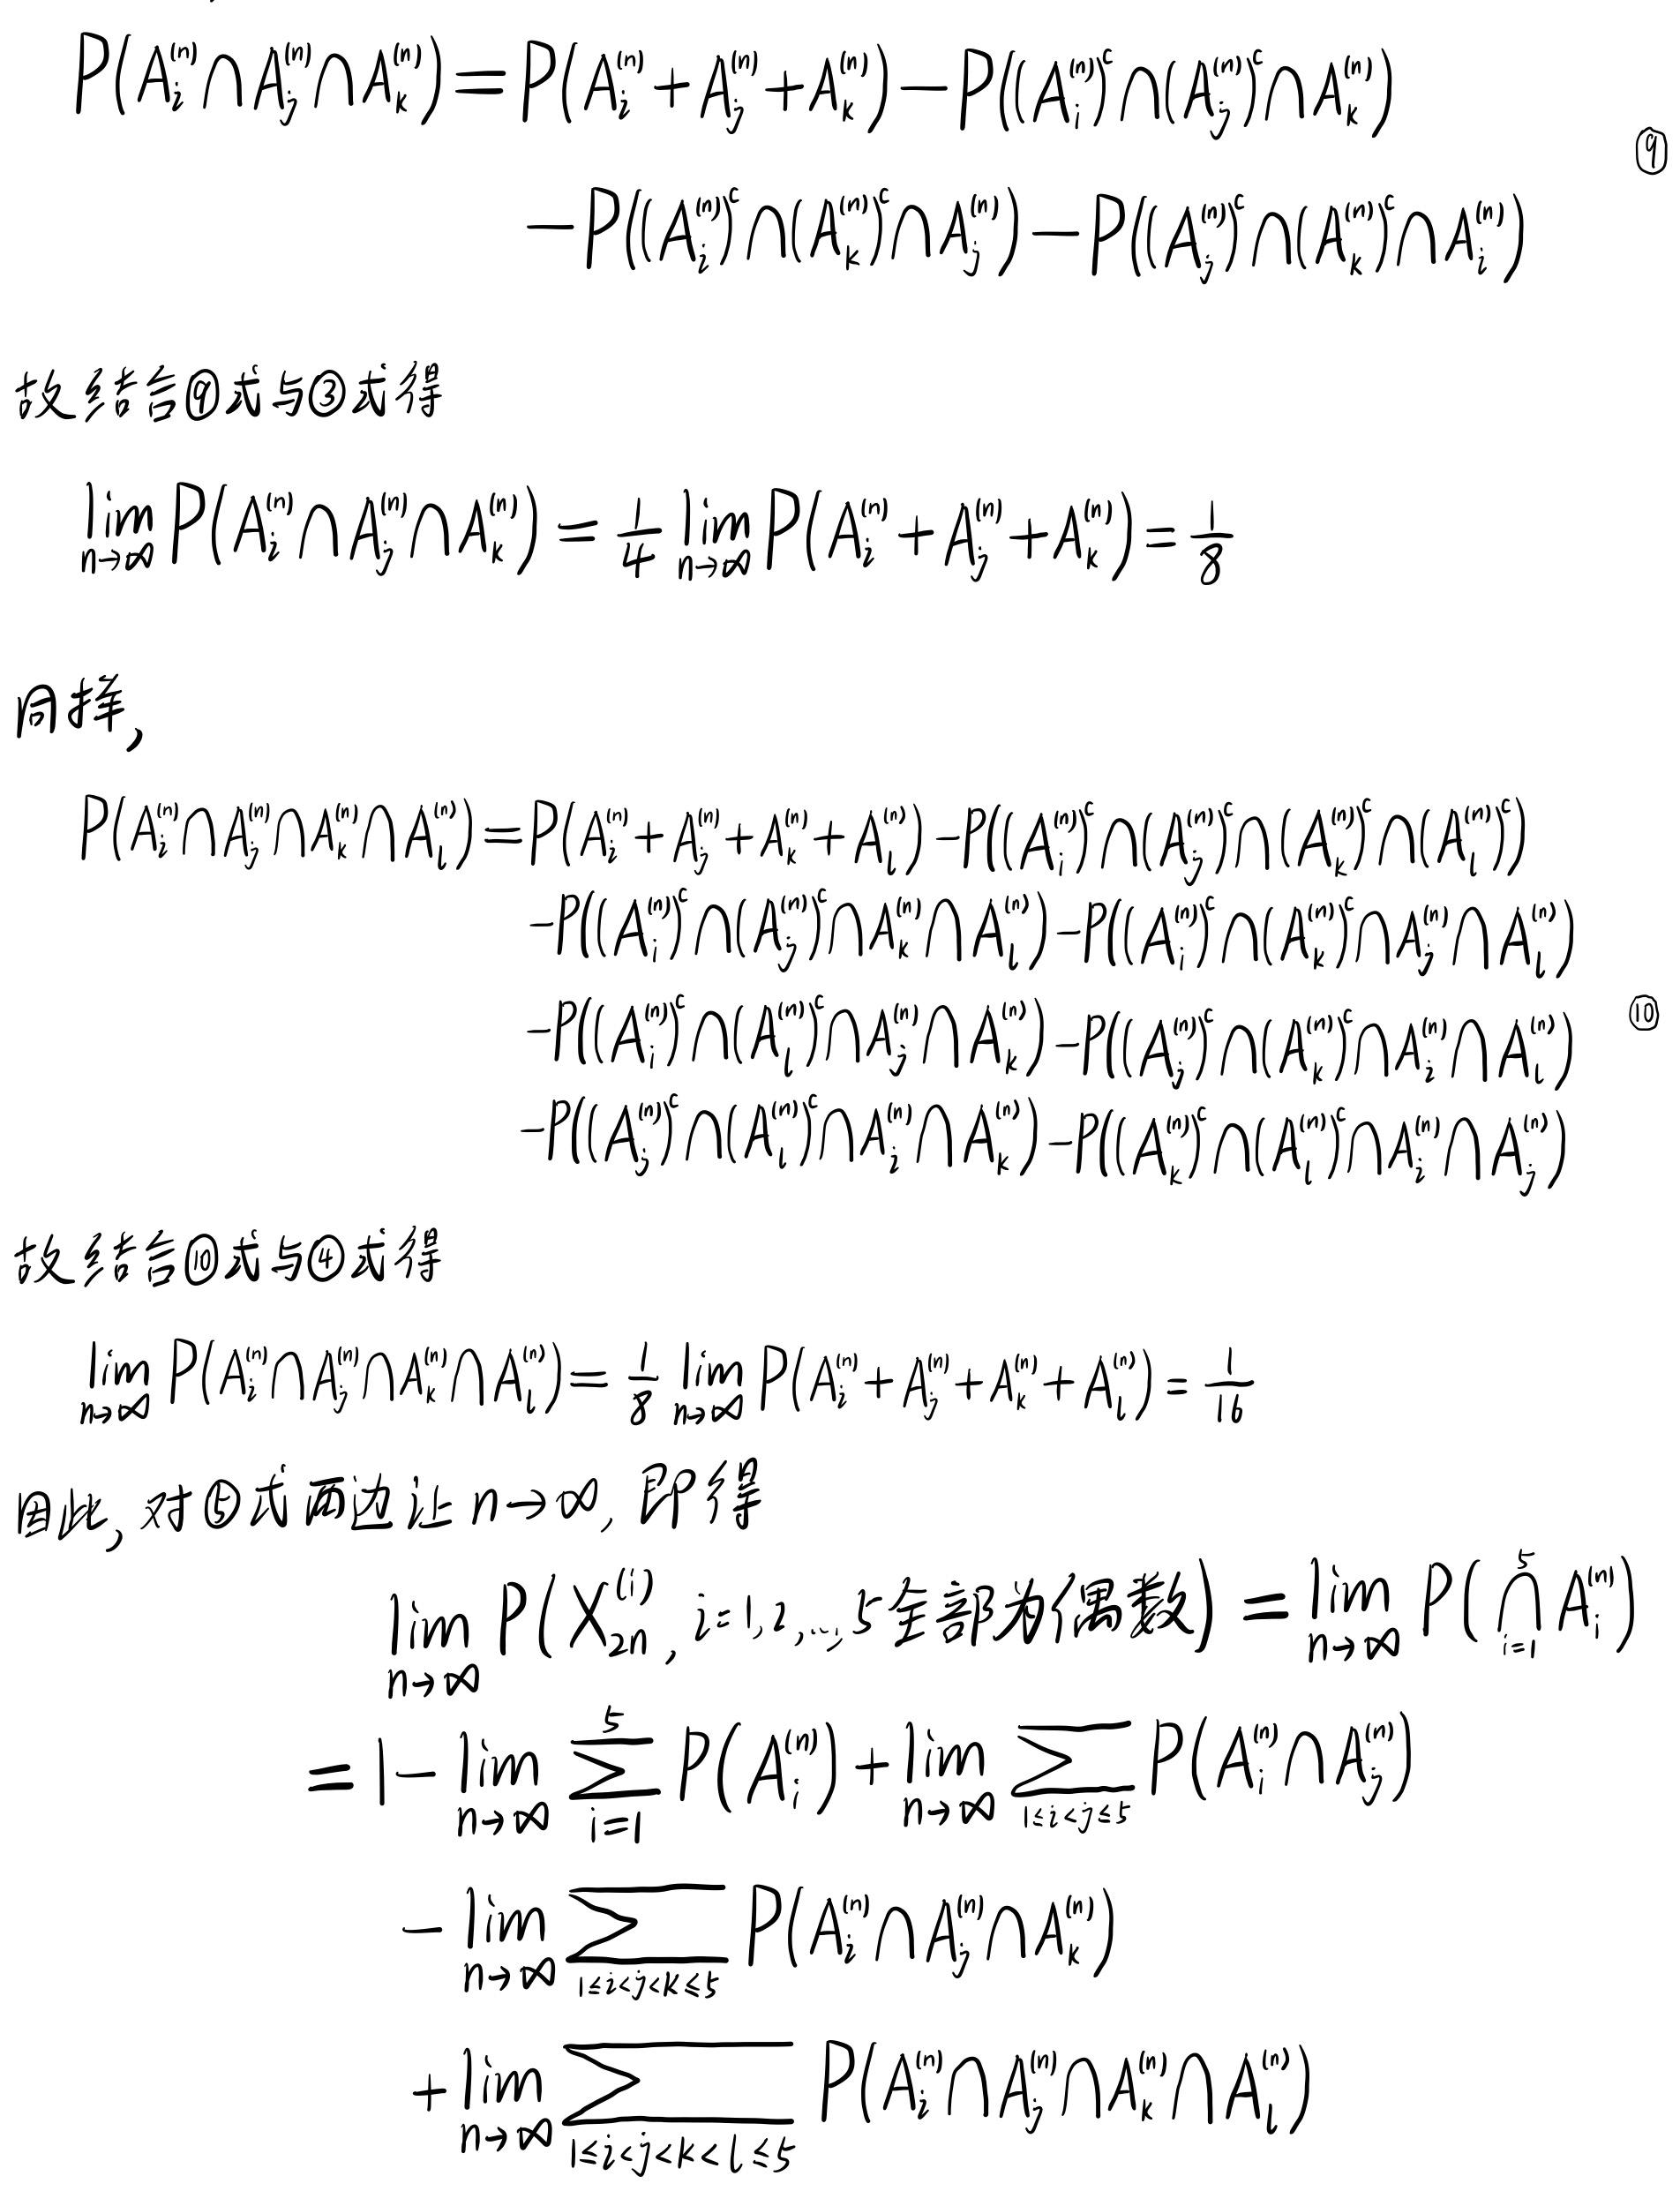 P(A_i^{(n)}∩A_j^{(n)}∩A_k^{(n)})=P(A_i^{(n)}+A_j^{(n)}+A_k^{(n)})-P((A_i^{(n)})^c∩(A_j^{(n)})^c∩A_k^{(n)})
⑨
-P((A_i^{(n)})^c∩(A_k^{(n)})^c∩A_j^{(n)})-P((A_j^{(n)})^c∩(A_k^{(n)})^c∩A_i^{(n)})
故结合⑨式与③式得
lim_{n→∞} P(A_i^{(n)}∩A_j^{(n)}∩A_k^{(n)}) = 1/4 lim_{n→∞} P(A_i^{(n)}+A_j^{(n)}+A_k^{(n)}) = 1/8
同样,
P(A_i^{(n)}∩A_j^{(n)}∩A_k^{(n)}∩A_l^{(n)})=P(A_i^{(n)}+A_j^{(n)}+A_k^{(n)}+A_l^{(n)})-P((A_i^{(n)})^c∩(A_j^{(n)})^c∩(A_k^{(n)})^c∩(A_l^{(n)})^c)
-P((A_i^{(n)})^c∩(A_j^{(n)})^c∩A_k^{(n)}∩A_l^{(n)})-P((A_i^{(n)})^c∩(A_k^{(n)})^c∩A_j^{(n)}∩A_l^{(n)})
-P((A_i^{(n)})^c∩(A_l^{(n)})^c∩A_j^{(n)}∩A_k^{(n)})-P((A_j^{(n)})^c∩(A_k^{(n)})^c∩A_i^{(n)}∩A_l^{(n)}) ⑩
-P((A_j^{(n)})^c∩(A_l^{(n)})^c∩A_i^{(n)}∩A_k^{(n)})-P((A_k^{(n)})^c∩(A_l^{(n)})^c∩A_i^{(n)}∩A_j^{(n)})
故结合⑩式与④式得
lim_{n→∞} P(A_i^{(n)}∩A_j^{(n)}∩A_k^{(n)}∩A_l^{(n)}) = 1/8 lim_{n→∞} P(A_i^{(n)}+A_j^{(n)}+A_k^{(n)}+A_l^{(n)}) = 1/16
因此, 对⑤式两边让 n→∞, 即得
lim_{n→∞} P(X_{2n}^{(i)}, i=1,2,...,5全部为偶数) = lim_{n→∞} P(∩_{i=1}^{5} A_i^{(n)})
= 1- lim_{n→∞} ∑_{i=1}^{5} P(A_i^{(n)}) + lim_{n→∞} ∑_{1≤i<j≤5} P(A_i^{(n)}∩A_j^{(n)})
- lim_{n→∞} ∑_{1≤i<j<k≤5} P(A_i^{(n)}∩A_j^{(n)}∩A_k^{(n)})
+ lim_{n→∞} ∑_{1≤i<j<k<l≤5} P(A_i^{(n)}∩A_j^{(n)}∩A_k^{(n)}∩A_l^{(n)})